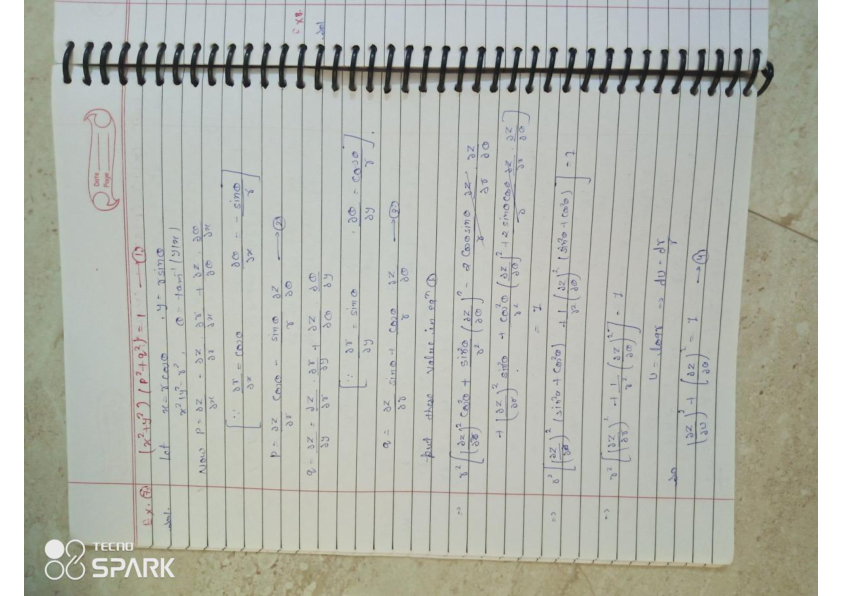 Date
Page
Ex. (7) (x²+y²) (p²+q²) = 1 → (1)
sol. Let x = r cosθ, y = r sinθ
x²+y² = r², θ = tan⁻¹ (y/x)
Now p = ∂z/∂x = ∂z/∂r ∂r/∂x + ∂z/∂θ ∂θ/∂x
[∵ ∂r/∂x = cosθ ∂θ/∂x = - sinθ/r]
p = ∂z/∂r cosθ - sinθ/r ∂z/∂θ → (2)
q = ∂z/∂y = ∂z/∂r . ∂r/∂y + ∂z/∂θ ∂θ/∂y
[∵ ∂r/∂y = sinθ . ∂θ/∂y = cosθ/r].
q = ∂z/∂r sinθ + cosθ/r ∂z/∂θ → (3)
put these value in eqⁿ (1)
⇒ r² [(∂z/∂r)² cos²θ + sin²θ/r² (∂z/∂θ)² - 2 cosθ sinθ/r ∂z/∂r ∂z/∂θ
+ (∂z/∂r)² sin²θ + cos²θ/r² (∂z/∂θ)² + 2 sinθ cosθ/r ∂z/∂r . ∂z/∂θ]
= 1
⇒ r² [(∂z/∂r)² (sin²θ + cos²θ) + 1/r² (∂z/∂θ)² (sin²θ + cos²θ)] = 1
⇒ r² [(∂z/∂r)² + 1/r² (∂z/∂θ)²] = 1
U = logr ⇒ dU = dr/r
so (∂z/∂U)² + (∂z/∂θ)² = 1 → (4)
Ex 8
sol.
TECNO
SPARK